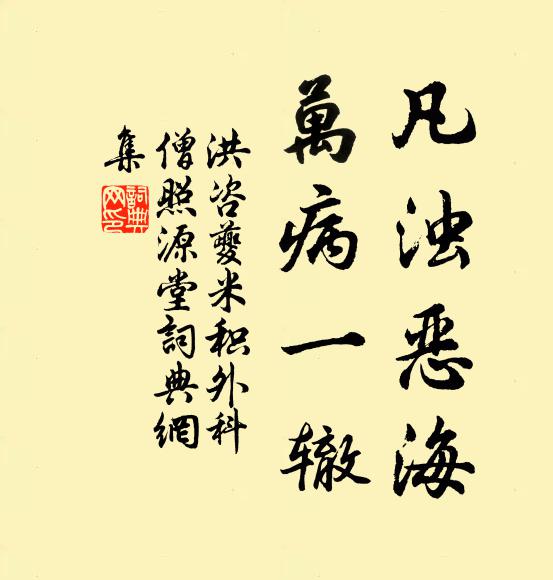 凡浊恶海
萬病一辙
洪咨夔米积外科
僧照源堂詞典網
集
詞典网印